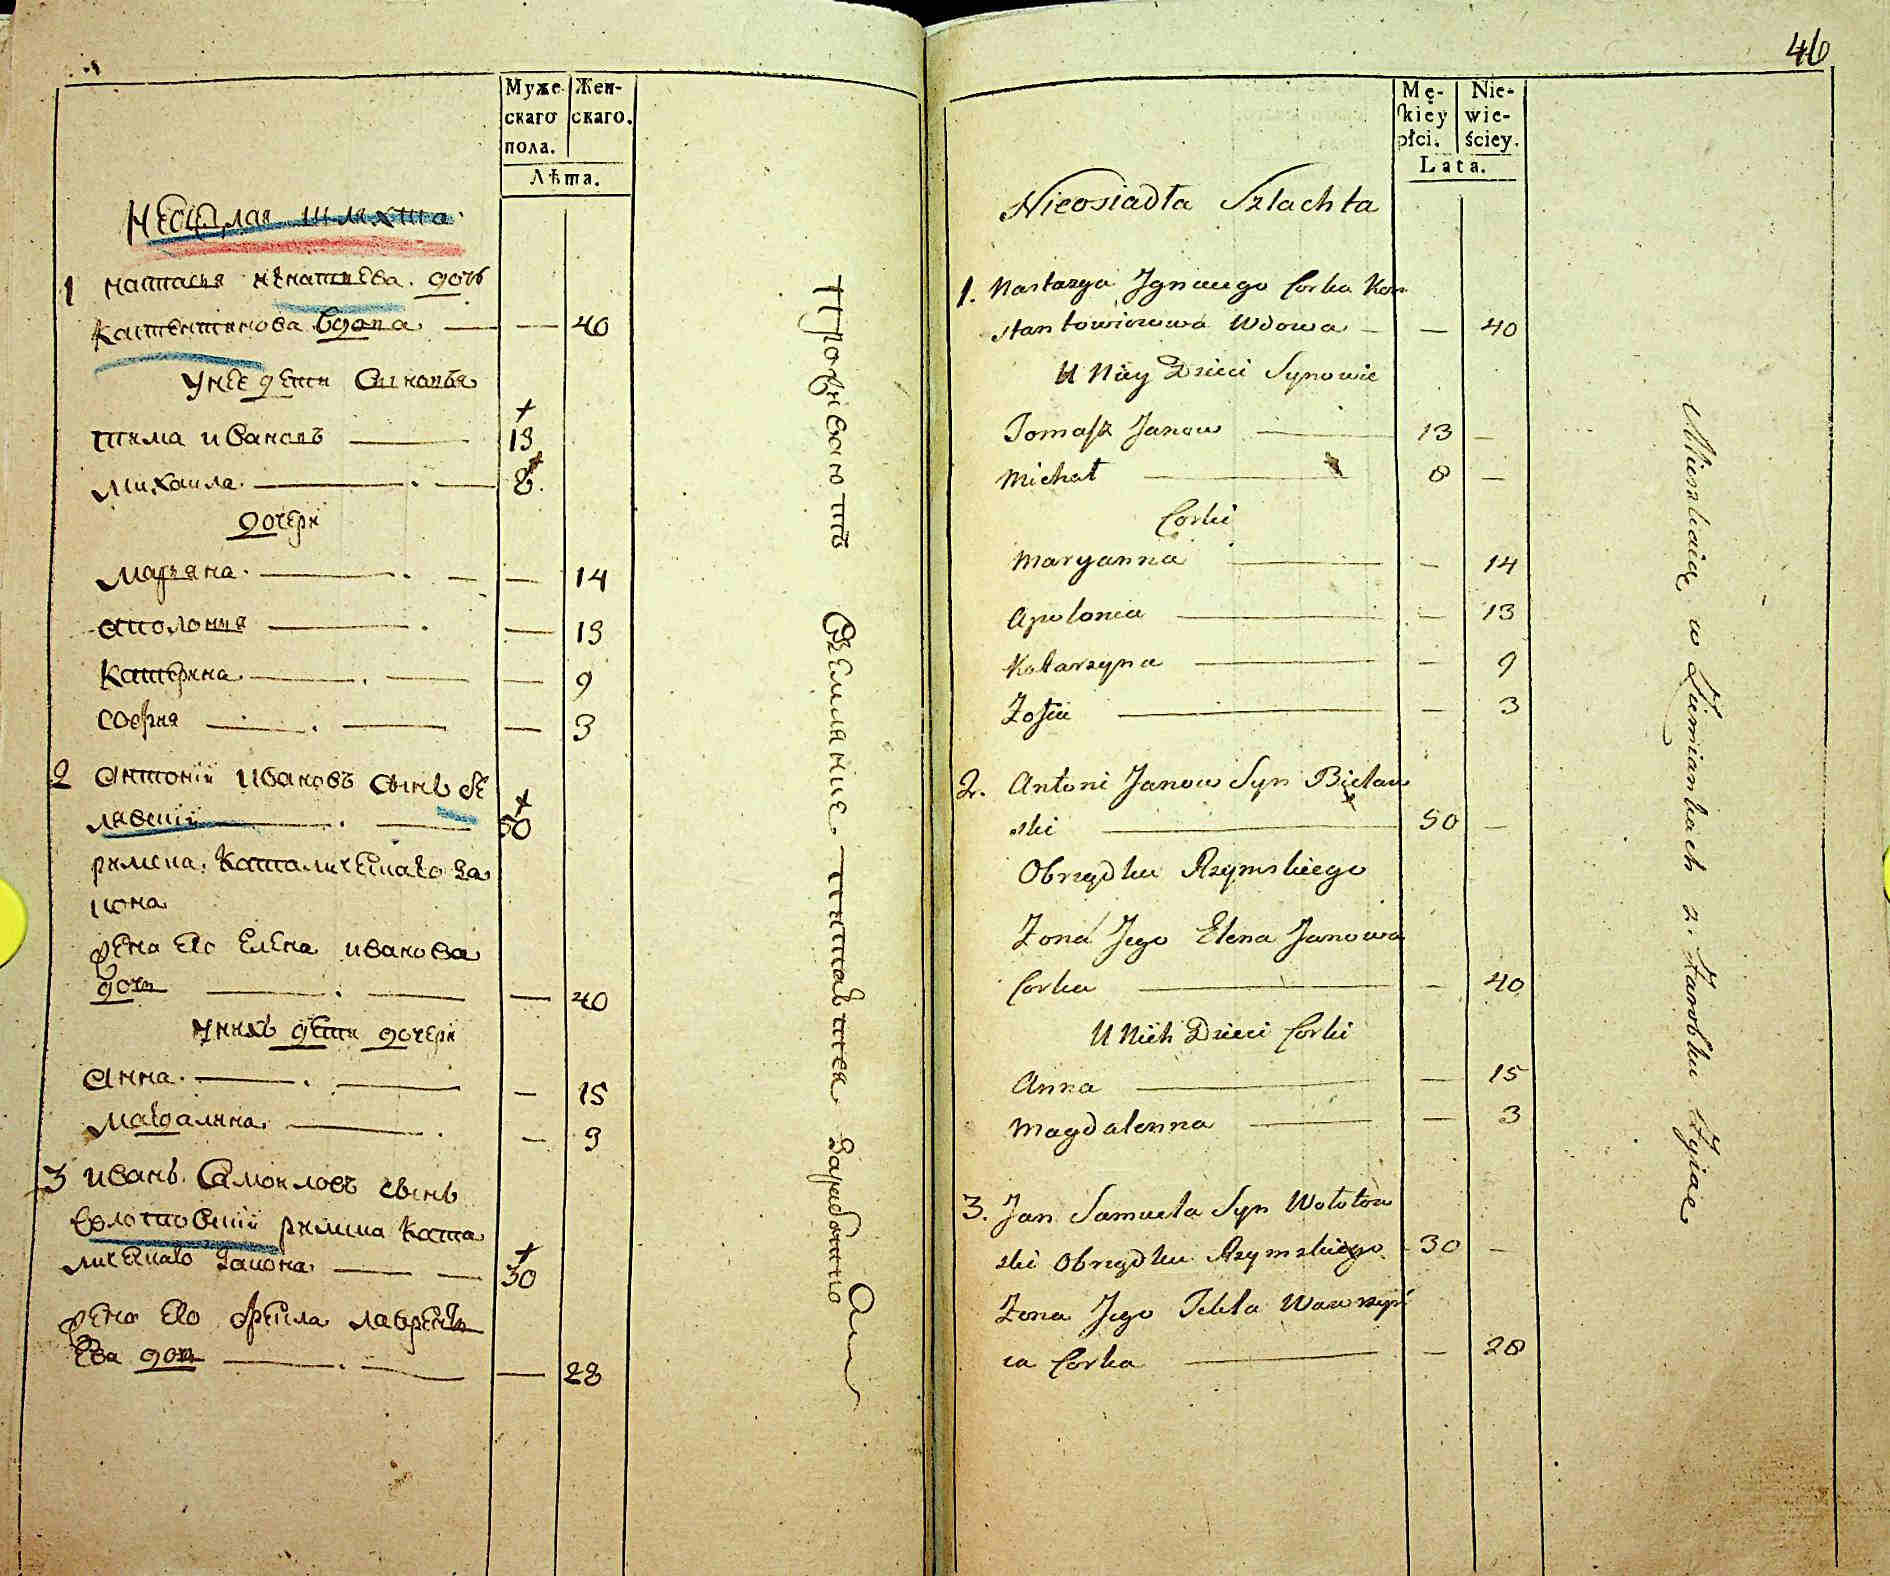 Муже
скаго
пола.
Жен-
скаго.
Лѣта.
Неоседлая шляхта
1 настасья игнатьева дочь
Каштентинова вдова — — 40
унее дети сыновья
тима ивановъ — 13
михаила — 8
дочери
марьяна — — 14
аполония — — 13
Катерина — — 9
софия — — 3
2 антоний ивановъ сынъ бе
лявский — 50
римска католическаго за
кона
жена его елена иванова
дочь — — 40
унихъ дети дочери
анна — — 15
магдалина — — 3
3 иванъ Самоиловъ сынъ
волотовский римска като
лическаго закона — 30
жена его фекла лаврень
ева дочь — — 28
Проживаютъ Земляние питаются заработью
46
Mę-
skiey
płci.
Nie-
wie-
ściey.
Lata.
Nieosiadła Szlachta
1. Nastazya Jgnacego Corka Kon
stantowiczowa Wdowa — — 40
U Niey Dzieci Synowie
Tomasz Janow — 13 —
Michał — 8 —
Corki
Maryanna — — 14
Apolonia — — 13
Katarzyna — — 9
Zofia — — 3
2. Antoni Janow Syn Bielaw
ski — 50 —
Obrządku Rzymskiego
Zona Jego Elena Janowa
Corka — — 40
U Nich Dzieci Corki
Anna — — 15
Magdalenna — — 3
3. Jan Samuela Syn Wołotow
ski Obrządku Rzymskiego - 30 —
Zona Jego Tekla Wawrzyń
ca Corka — — 28
Mieszkaią w Ziemiankach z Zarobku Zyiąc